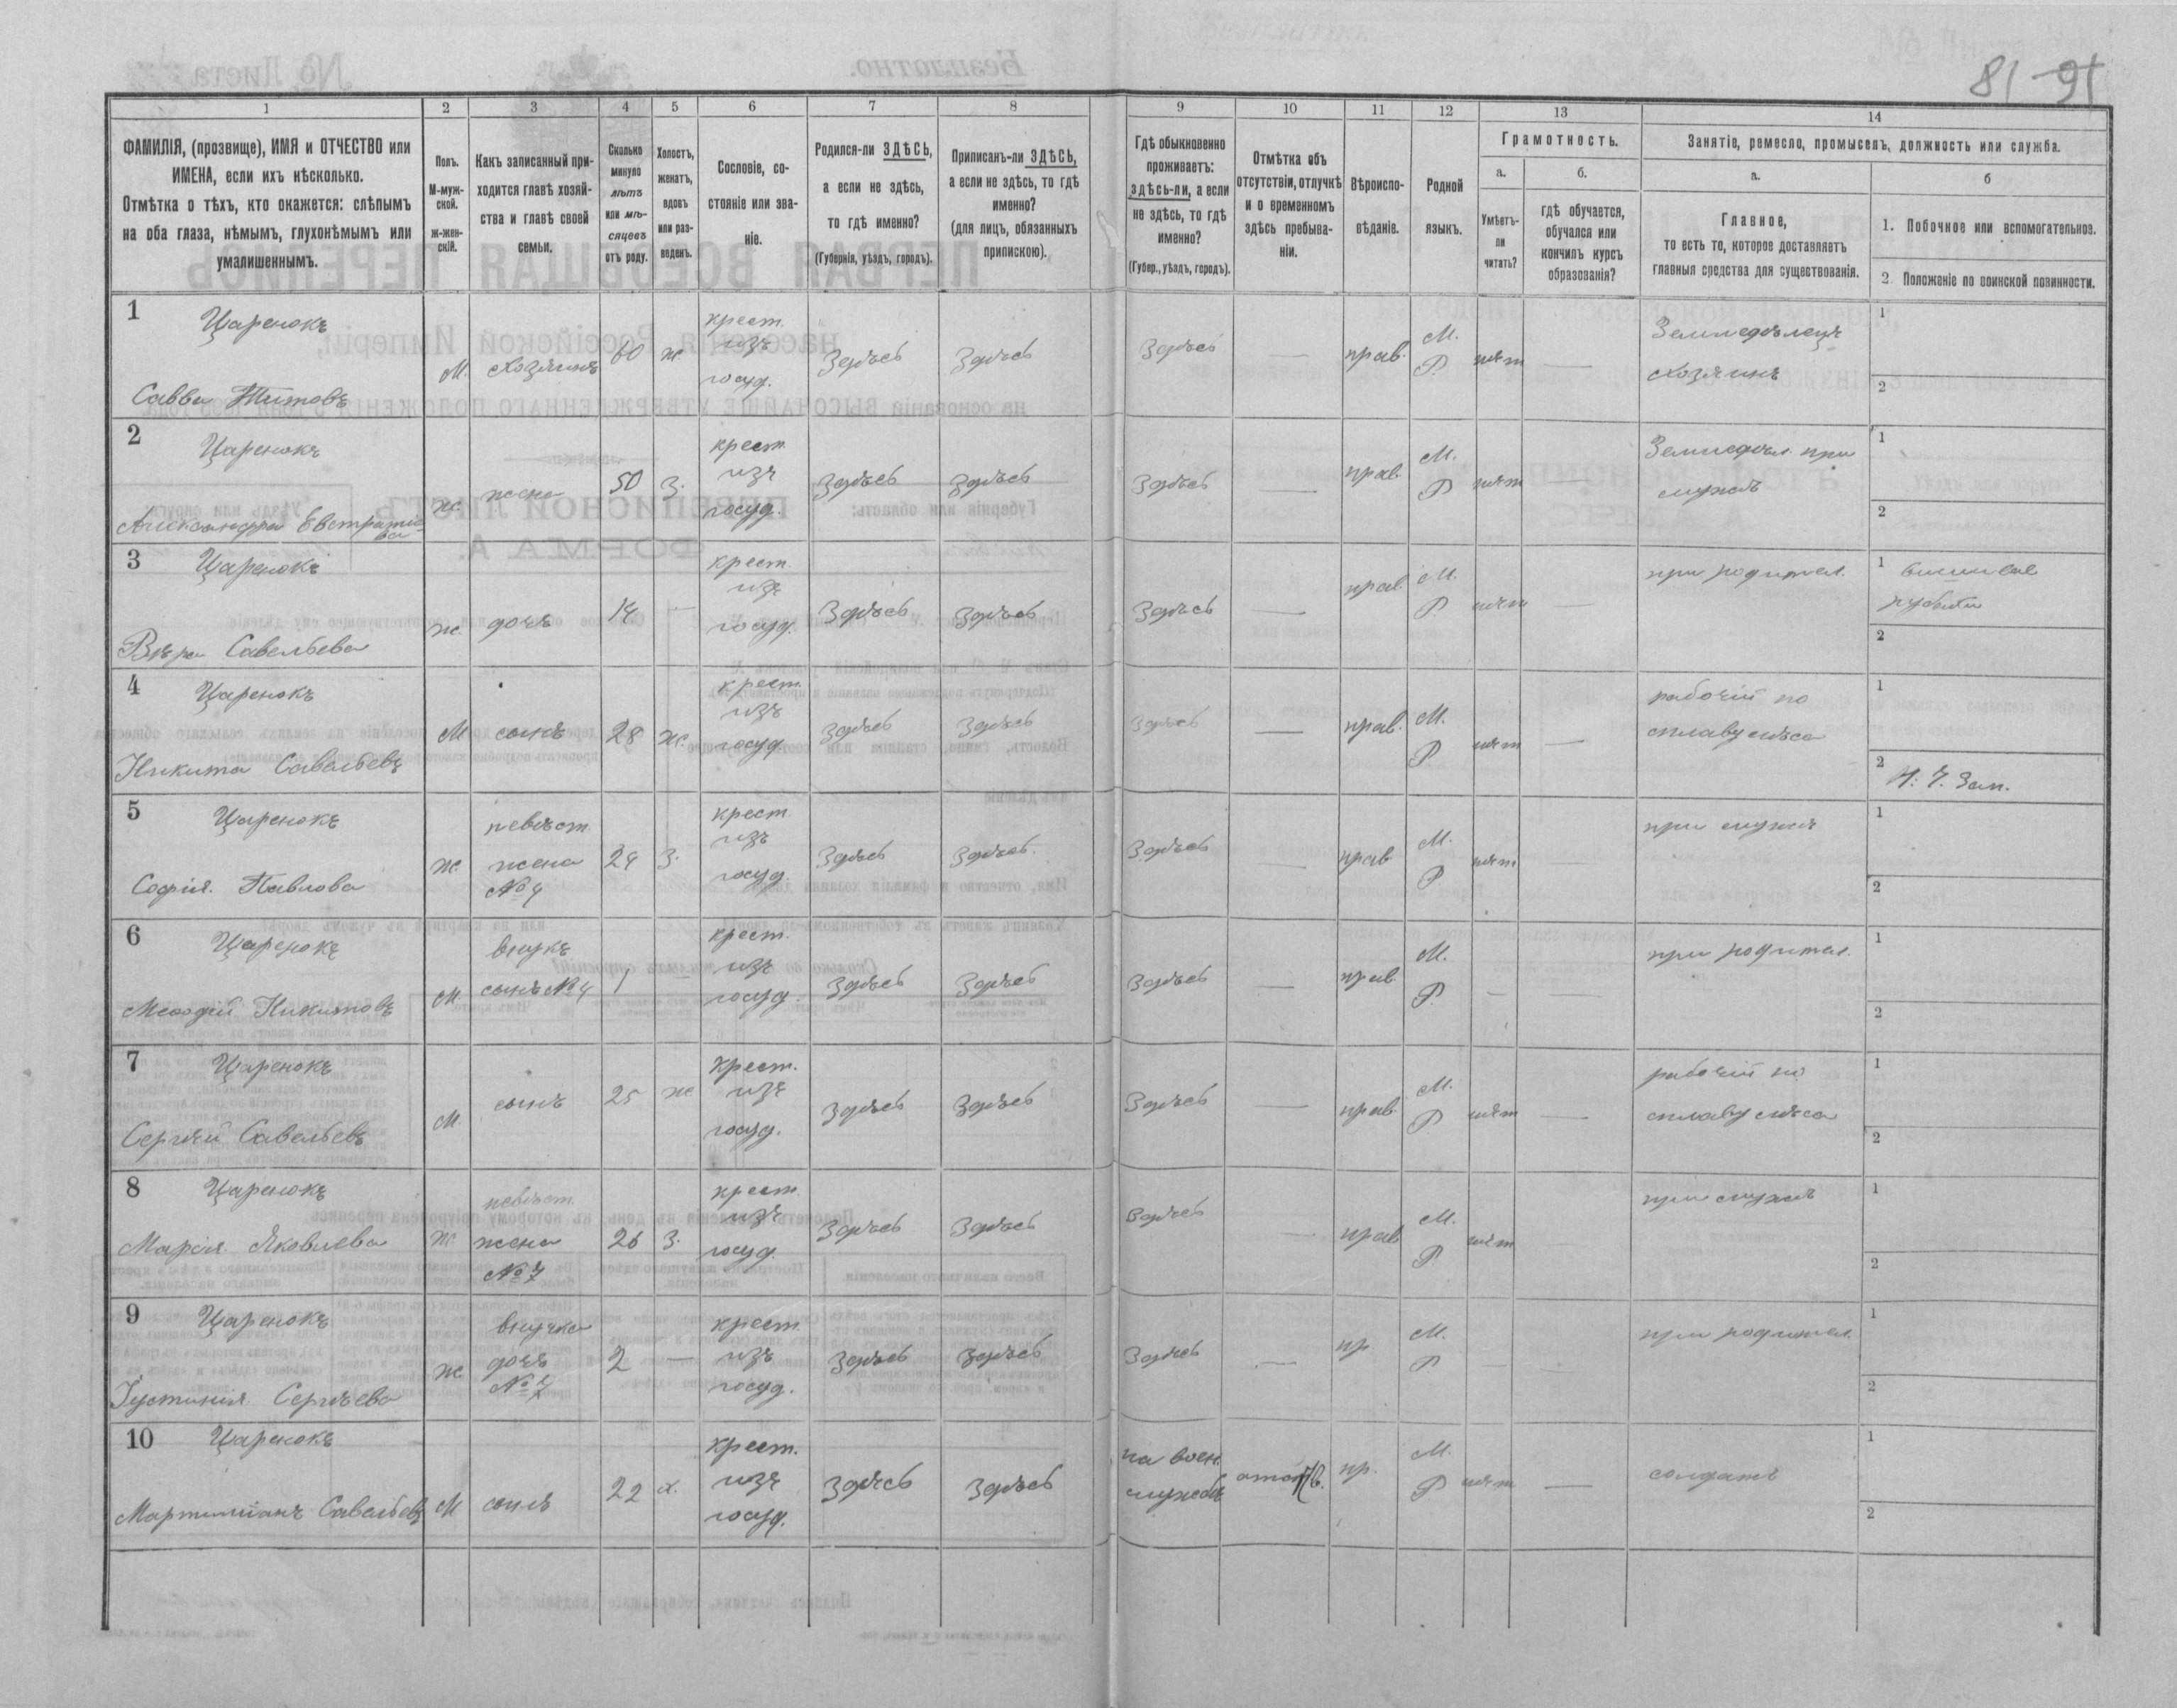 81-91
1 2 3 4 5 6 7 8 9 10 11 12 13 14
ФАМИЛІЯ, (прозвище), ИМЯ и ОТЧЕСТВО или
ИМЕНА, если ихъ нѣсколько.
Отмѣтка о тѣхъ, кто окажется: слѣпымъ
на оба глаза, нѣмымъ, глухонѣмымъ или
умалишеннымъ.
Полъ.
М-муж-
ской.
Ж-жен-
скій.
Какъ записанный при-
ходится главѣ хозяй-
ства и главѣ своей
семьи.
Сколько
минуло
лѣтъ
или мѣ-
сяцевъ
отъ роду.
Холостъ,
женатъ,
вдовъ
или раз-
веденъ.
Сословіе, со-
стояніе или зва-
ніе.
Родился-ли ЗДѢСЬ,
а если не здѣсь,
то гдѣ именно?
(Губернія, уѣздъ, городъ).
Приписанъ-ли ЗДѢСЬ,
а если не здѣсь, то гдѣ
именно?
(для лицъ, обязанныхъ
припискою).
Гдѣ обыкновенно
проживаетъ:
здѣсь-ли, а если
не здѣсь, то гдѣ
именно?
(Губер., уѣздъ, городъ).
Отмѣтка объ
отсутствіи, отлучкѣ
и о временномъ
здѣсь пребыва-
ніи.
Вѣроиспо-
вѣданіе.
Родной
языкъ.
Грамотность.
а.
Умѣетъ-
ли
читать?
б.
гдѣ обучается,
обучался или
кончилъ курсъ
образованія?
Занятіе, ремесло, промыселъ, должность или служба.
а.
Главное,
то есть то, которое доставляетъ
главныя средства для существованія.
б
1. Побочное или вспомогательное.
2. Положеніе по воинской повинности.
1 Царенокъ
Савва Титовъ
М. Хозяинъ 60 ж.
крест.
изъ
госуд.
Здѣсь Здѣсь Здѣсь — прав.
М.
Р
нѣт —
Земледѣлецъ
хозяинъ
1
2
2 Царенокъ
Александра Евстратіе
ва
ж. жена 50 З.
крест.
изъ
госуд.
Здѣсь Здѣсь Здѣсь — прав.
М.
Р
нѣт —
Земледѣл. при
мужѣ
1
2
3 Царенокъ
Вѣра Савельева
ж. дочь 14 —
крест.
изъ
госуд.
Здѣсь Здѣсь Здѣсь — прав.
М.
Р
нѣт —
при родител.
1
2
4 Царенокъ
Никита Савельевъ
М сынъ 28 ж.
крест.
изъ
госуд.
Здѣсь Здѣсь Здѣсь — прав.
М.
Р
нѣт —
рабочій по
сплаву лѣса
1
2 Н. Ч. Зап.
5 Царенокъ
Софія Павлова
ж.
невѣст.
жена
№ 4
24 З.
крест.
изъ
госуд.
Здѣсь Здѣсь Здѣсь — прав
М.
Р
нѣт —
при мужѣ
1
2
6 Царенокъ
Никитовъ
М.
внукъ
сынъ № 4
1 —
крест.
изъ
госуд.
Здѣсь Здѣсь Здѣсь — прав.
М.
Р.
— —
при родител.
1
2
7 Царенокъ
Сергѣй Савельевъ
М. сынъ 25 ж
крест.
изъ
госуд.
Здѣсь Здѣсь Здѣсь — прав.
М.
Р
нѣт —
рабочій по
сплаву лѣса
1
2
8 Царенокъ
Марія Яковлева
ж.
невѣст.
жена
№ 7
26 З.
крест.
изъ
госуд.
Здѣсь Здѣсь Здѣсь — прав
М.
Р
нѣт —
при мужѣ
1
2
9 Царенокъ
Іустинія Сергѣева
ж
внучка
дочь
№ 7
2 —
крест.
изъ
госуд.
Здѣсь Здѣсь Здѣсь — пр.
М.
Р
— —
при родител.
1
2
10 Царенокъ
Мартиніанъ Савельевъ
М сынъ 22 х.
крест.
изъ
госуд.
Здѣсь Здѣсь
на воен.
службѣ
пр.
М.
Р
нѣт —
солдатъ
1
2